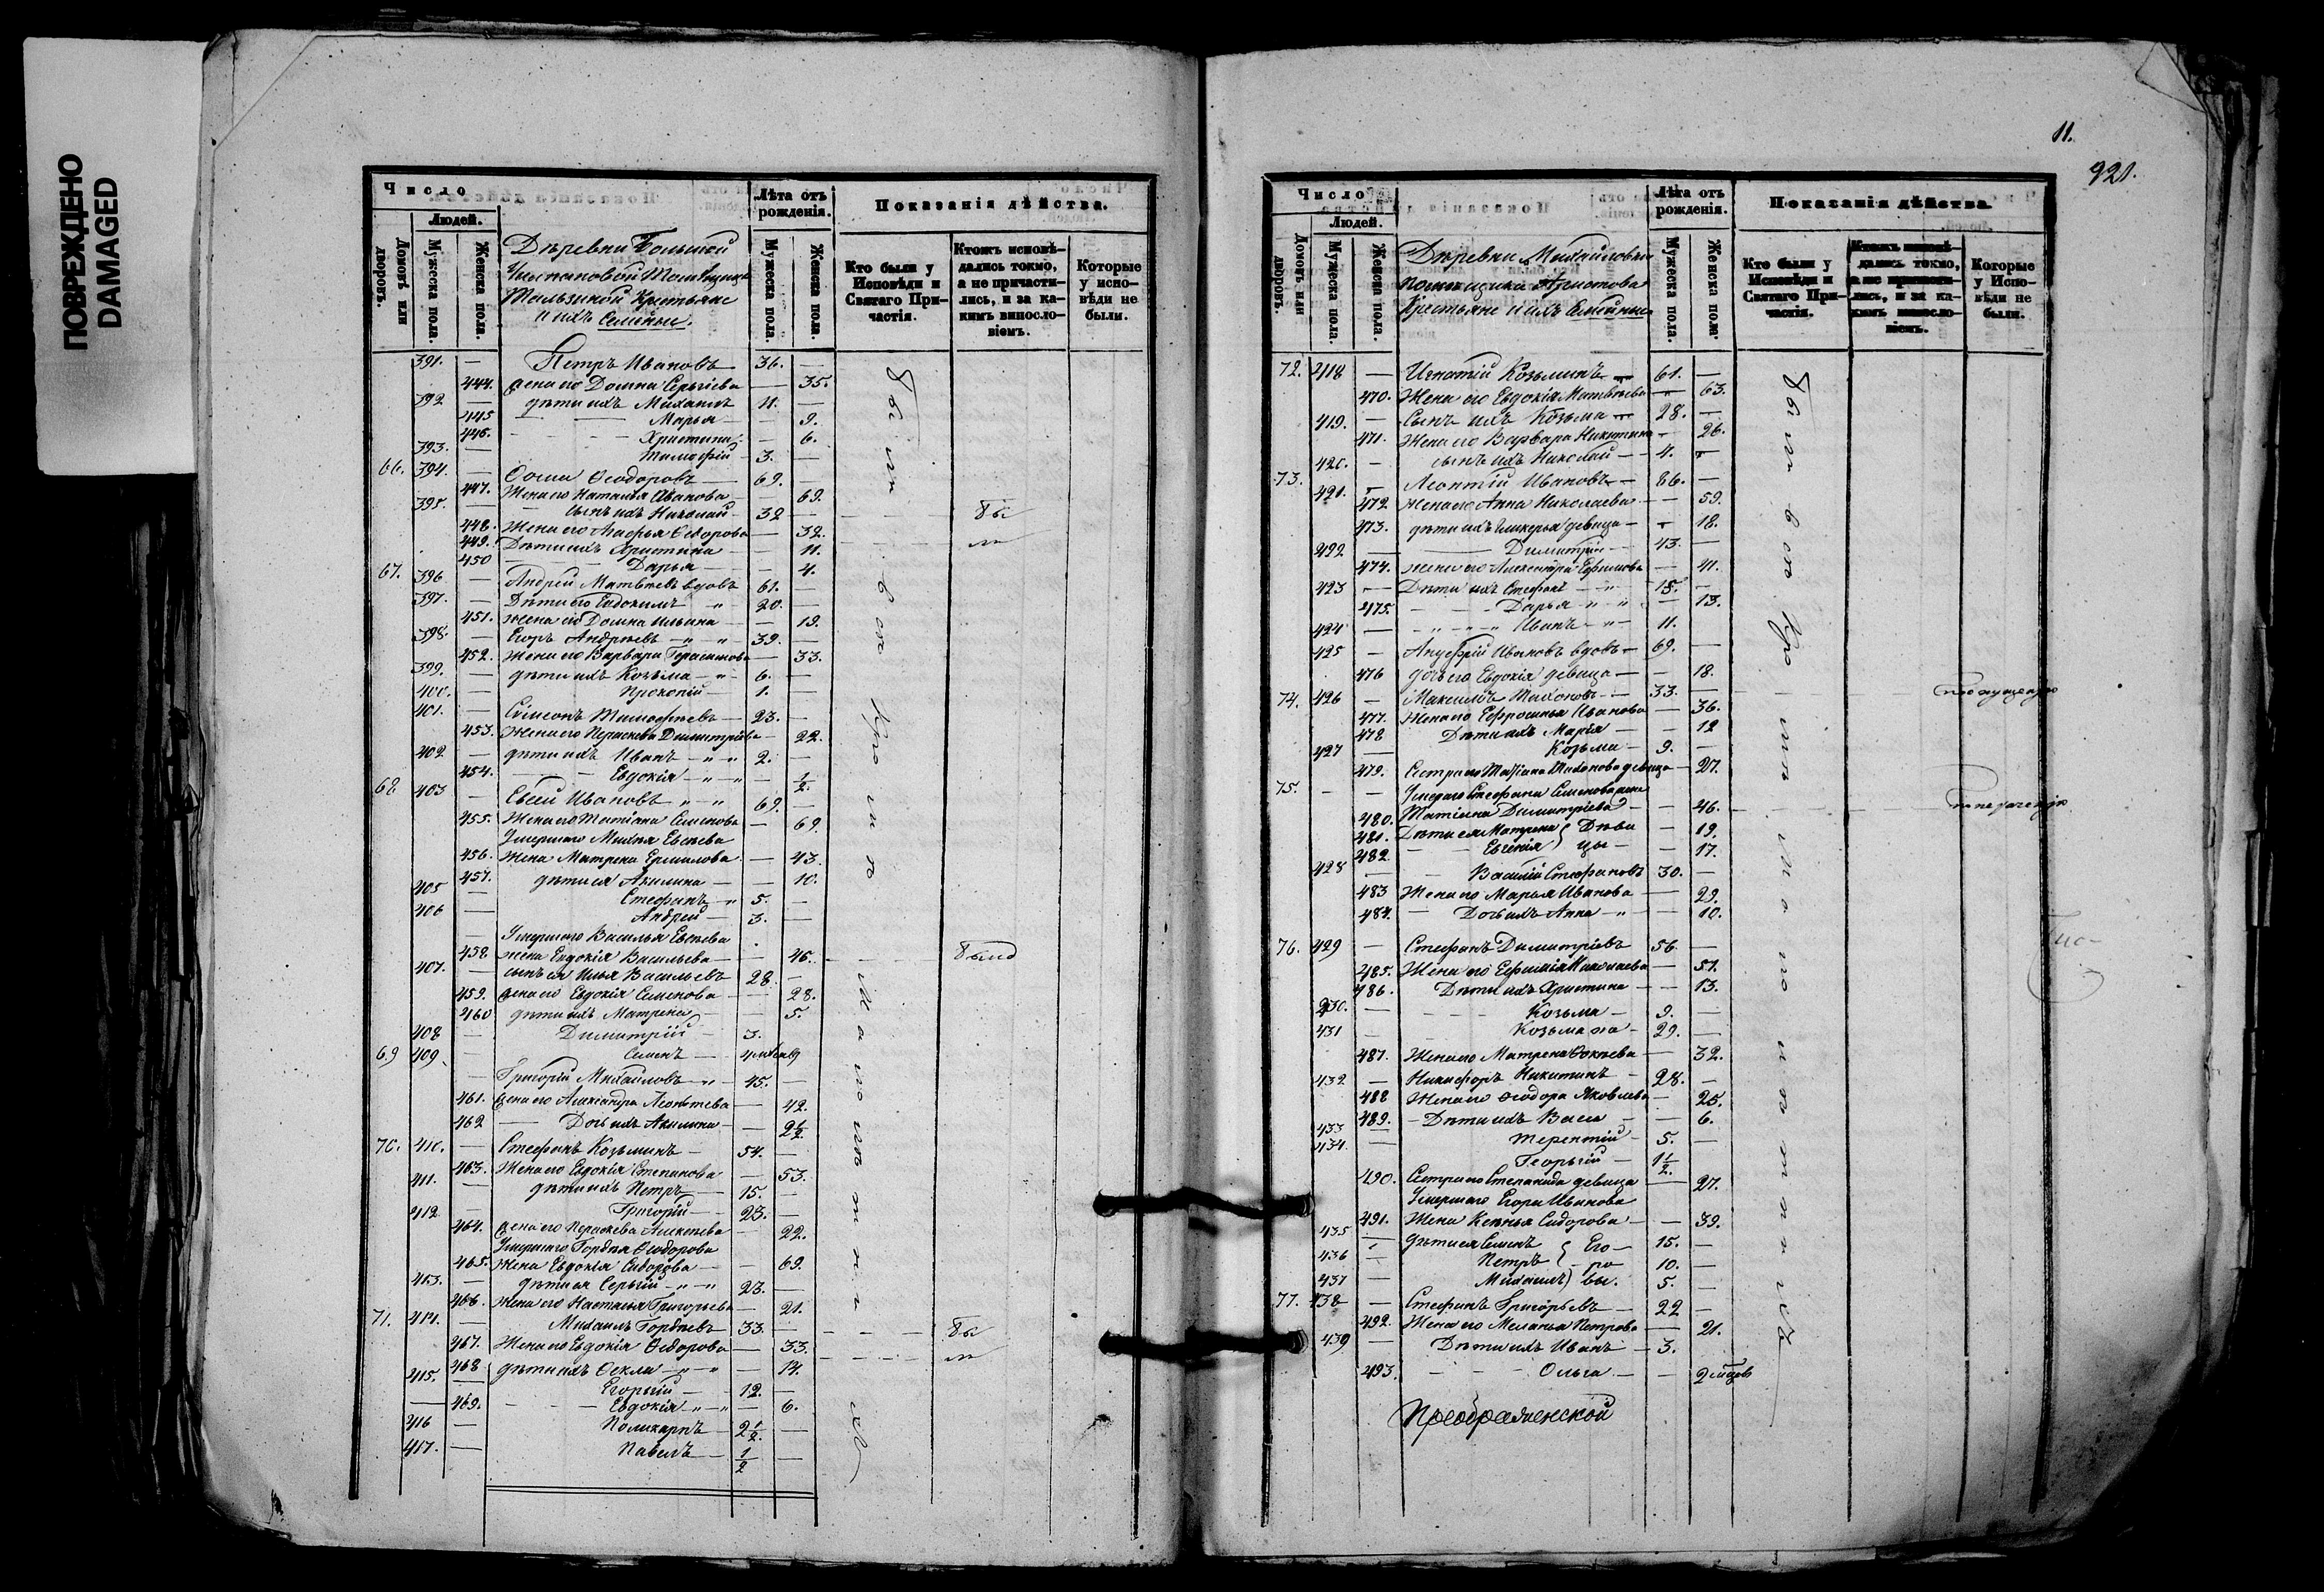 ПОВРЕЖДЕНО
DAMAGED
Число
Людей.
Домовъ или дворовъ.
Мужеска пола.
Женска пола.
Деревни Большой
Помѣщика
Крестьяне
и ихъ Семейные.
Лѣта отъ рожденія.
Мужеска пола.
Женска пола.
Показанія дѣйства.
Кто были у Исповѣди и Святаго Причастія.
Ктожъ исповѣдались токмо, а не причастились, и за какимъ винословіемъ.
Которые у исповѣди не были.
391. — Петръ Ивановъ 36. —
444. жена его Домна Сергіева — 35.
392 — дѣти ихъ Михаилъ 11. —
445 — Марья — 9.
446. Христина — 6.
393. — Тимофей 3. —
66. 394. — Ѳома Ѳеодоровъ 69. —
447. Жена его Наталья Иванова — 69.
395. — сынъ ихъ Николай 32 —
448. Жена его Ѳедорова — 32.
449. Дѣти ихъ Христина — 11.
450 Дарья — 4.
67. 396 — Андрей Матвѣевъ вдовъ 61. —
397. — Дѣти его Евдокимъ 20. —
451. жена его Домна Ильина — 19.
398. — Егоръ Андреевъ 39. —
452. Жена его Варвара Герасимова — 33.
399. — дѣти ихъ Козьма 6. —
400. — Прокопій 1.
401. — Симеонъ Тимофеевъ 23. —
453. Жена его Параскева Димитріева — 22.
402 — дѣти ихъ Иванъ 2. —
454. Евдокія — 1/2.
68 403 — Евсей Ивановъ 69. —
455. Жена его Татіана Семенова — 69.
Умершаго Михея Евсеева
456. жена Матрена Ермилова — 43.
457. дѣти ея Акилина — 10.
405 — Стефанъ 5. —
406 — Андрей 3. —
Умершаго Василья Евсеева
458. жена Евдокія Васильева — 46.
407. — сынъ ея Илья Васильевъ 28. —
459. жена его Евдокія Семенова — 28.
460 дѣти ихъ Матрена — 5.
408 — Димитрій 3.
69 409. — Семенъ
— Григорій Михайловъ 45. —
461. жена его Александра — 42.
462 — Дочь ихъ Акилина — 2 1/2.
70. 410. — Стефанъ Козьминъ 54. —
463. Жена его Евдокія Степанова — 53.
411. — дѣти ихъ Петръ 15. —
412 — Григорій 23. —
464. жена его Параскева — 22.
Умершаго Гордѣя Ѳеодорова
465. Жена Евдокія Сидорова — 69.
413. — дѣти ея Сергій 23. —
466. Жена его Настасья Григорьева — 21.
71. 414. — Михаилъ Гордѣевъ 33. —
467. Жена его Евдокія Ѳедорова — 33.
468 дѣти ихъ Ѳекла — 14.
415. — Егорній 12. —
469. Евдокія — 6.
416 — Поликарпъ 2 1/2. —
417. — Павелъ 1/2 —
Были
во
Христианы
Были
Были
Была
11.
921.
Число
Людей.
Домовъ или дворовъ.
Мужеска пола.
Женска пола.
Деревни Михайловки
Помѣщика Аристова
Крестьяне и ихъ Семейные
Лѣта отъ рожденія.
Мужеска пола.
Женска пола.
Показанія дѣйства.
Кто были у Исповѣди и Святаго Причастія.
Ктожъ исповѣдались токмо, а не причастились, и за какимъ винословіемъ.
Которые у Исповѣди не были.
72. 418 — Игнатій Козьминъ 61. —
470. Жена его Евдокія Матвѣева — 63.
419. — Сынъ ихъ Козьма 28. —
471. Жена его Варвара Никитина — 26.
420. — сынъ ихъ Николай 4. —
73. 421. — Леонтій Ивановъ 66. —
472 жена его Анна Николаева — 59.
473. дѣти ихъ Гликерья девица — 18.
422 — Димитрій 43. —
474. жена его Александра Ефимова — 41.
423 — Дѣти ихъ Стефанъ 15. —
475. Дарья — 13.
424 — Иванъ 11.
425 — Ануфрій Ивановъ вдовъ 69. —
476 дочь его Евдокія девица — 18.
74. 426 — Максимъ Тихоновъ 33. —
477. Жена его Ефросинья Иванова — 36.
478 Дѣти ихъ Марія — 12
427 — Козьма 9. —
479. Сестра его Татіана Тихонова девица — 27.
75. — — Умершаго Стефана Семенова жена
480. Татіана Димитріева — 46.
481. Дѣти ея Матрена } Дѣви — 19.
482. Евгенія } цы — 17.
428 — Василій Стефановъ 30. —
483 Жена его Марья Иванова — 29.
484. — Дочь ихъ Анна — 10.
76. 429 — Стефанъ Димитріевъ 56 —
485. Жена его Ефимія Николаева — 51.
486. Дѣти ихъ Христина — 13.
430. — Козьма 9. —
431 — Козьма 29. —
487. Жена его Матрена — 32.
432 — Никифоръ Никитинъ 28. —
488 Жена его Ѳеодора Яковлева — 25.
489. Дѣти ихъ Васса — 6.
433 — Терентій 5. —
434. Георгій 1 1/2.
490. Сестра его Степанида девица — 27.
Умершаго Егора Иванова
491. Жена Ксенья Сидорова — 39.
435 — Дѣти ея Семенъ } Его 15. —
436 — Петръ } ро 10. —
437 — Михаилъ } вы. 5. —
77. 438 — Стефанъ Григорьевъ 22 —
492. Жена его Меланья Петрова — 21.
439 — Дѣти ихъ Иванъ 3.
493. Ольга — 2 мѣсяц
Преображенской
Были
во